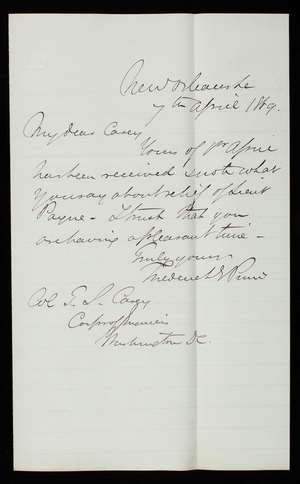 New Orleans La
7th April 1869.
My dear Casey
Yours of 1st April
has been received I note what
you say about relief of Lieut
Payne - I trust that you
are having a pleasant time -
Truly yours
Frederick E Prime
Col T. L. Casey
Corps of Engineers
Washington DC.